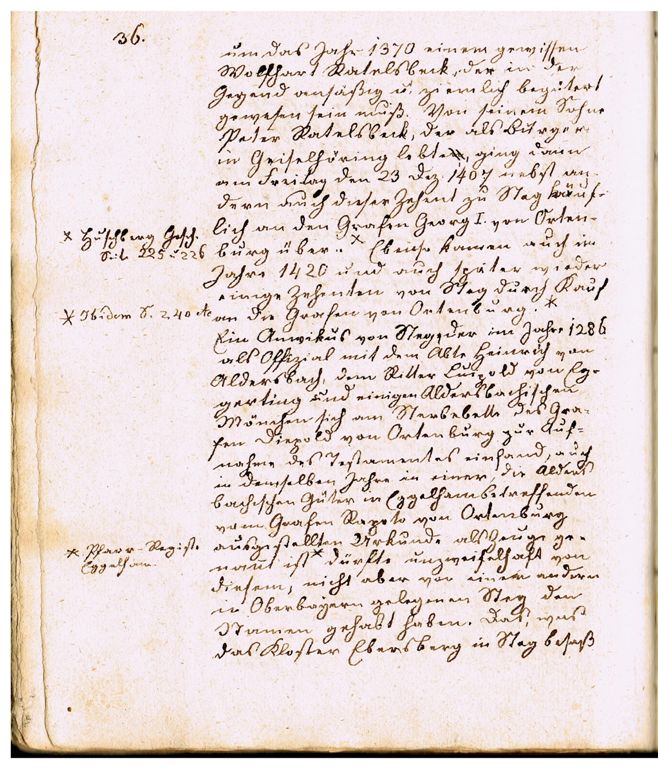 36.
um das Jahr 1370 einem gewissen
Wolfhart Ratelsbeck, der in der
Gegend ansäßig u ziemlich begütert
gewesen sein muß. Von seinem Sohne
Peter Ratelsbeck, der als Bürger
in Geiselhöring lebte, ging dann
am Freitag den 23 Dez. 1407 nebst an-
dern auch dieser Zehent zu Steg käuf-
lich an den Grafen Georg I. von Orten-
burg über. * Ebenso kamen auch im
Jahre 1420 und auch später wieder
einige Zehenten von Steg durch Kauf
an die Grafen von Ortenburg. *
Ein Amwikus von Steg, der im Jahre 1286
als Offizial mit dem Abte Heinrich von
Aldersbach, dem Ritter Luipold von Eg-
gerting und einigen Aldersbachischen
Mönchen sich am Sterbebette des Gra-
fen Diepold von Ortenburg zur Auf-
nahme des Testamentes einfand, auch
in demselben Jahre in einer, die Alders
bachischen Güter in Eggelham betreffenden
vom Grafen Rapoto von Ortenburg
ausgestellten Urkunde als Zeuge ge-
nant ist * dürfte unzweifelhaft von
diesem, nicht aber von einem andern
in Oberbayern gelegenen Steg den
Namen gehabt haben. Das, was
das Kloster Ebersberg in Steg besaß
* Huschberg Gesch.
S: 225 u 226
* Ibidem S. 240 etc
* Pfarr-Regist.
Eggelham.